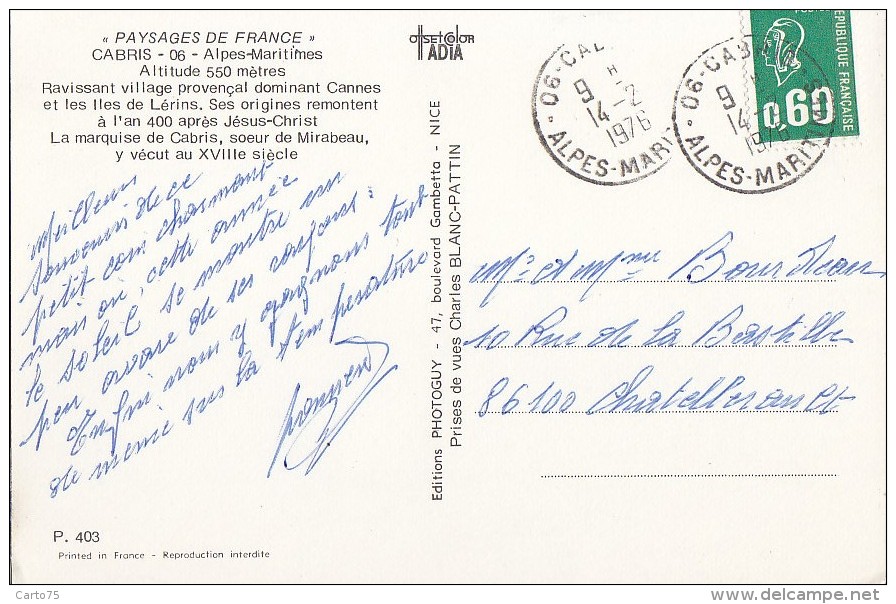 « PAYSAGES DE FRANCE »
CABRIS - 06 - Alpes-Maritimes
Altitude 550 mètres
Ravissant village provençal dominant Cannes
et les Iles de Lérins. Ses origines remontent
à l'an 400 après Jésus-Christ
La marquise de Cabris, soeur de Mirabeau,
y vécut au XVIIIe siècle
Meilleurs
souvenirs de ce
petit coin charmant
mais où, cette année
le soleil se montre un
peu avare de ses rayons :
Enfin nous y gagnons tout
de même sur la température
P. 403
Printed in France - Reproduction interdite
OffSET COLOR
ADIA
Editions PHOTOGUY - 47, boulevard Gambetta - NICE
Prises de vues Charles BLANC-PATTIN
06-CAB
9 H
14-2
1976
ALPES-MARIT
06-CABRIS
9 H
14
197
ALPES-MARIT
RÉPUBLIQUE FRANÇAISE
0,60
Mr et Mme Bourdeau
10 Rue de la Bastille
86100 Chatellerault
Carto75
www.delcampe.net